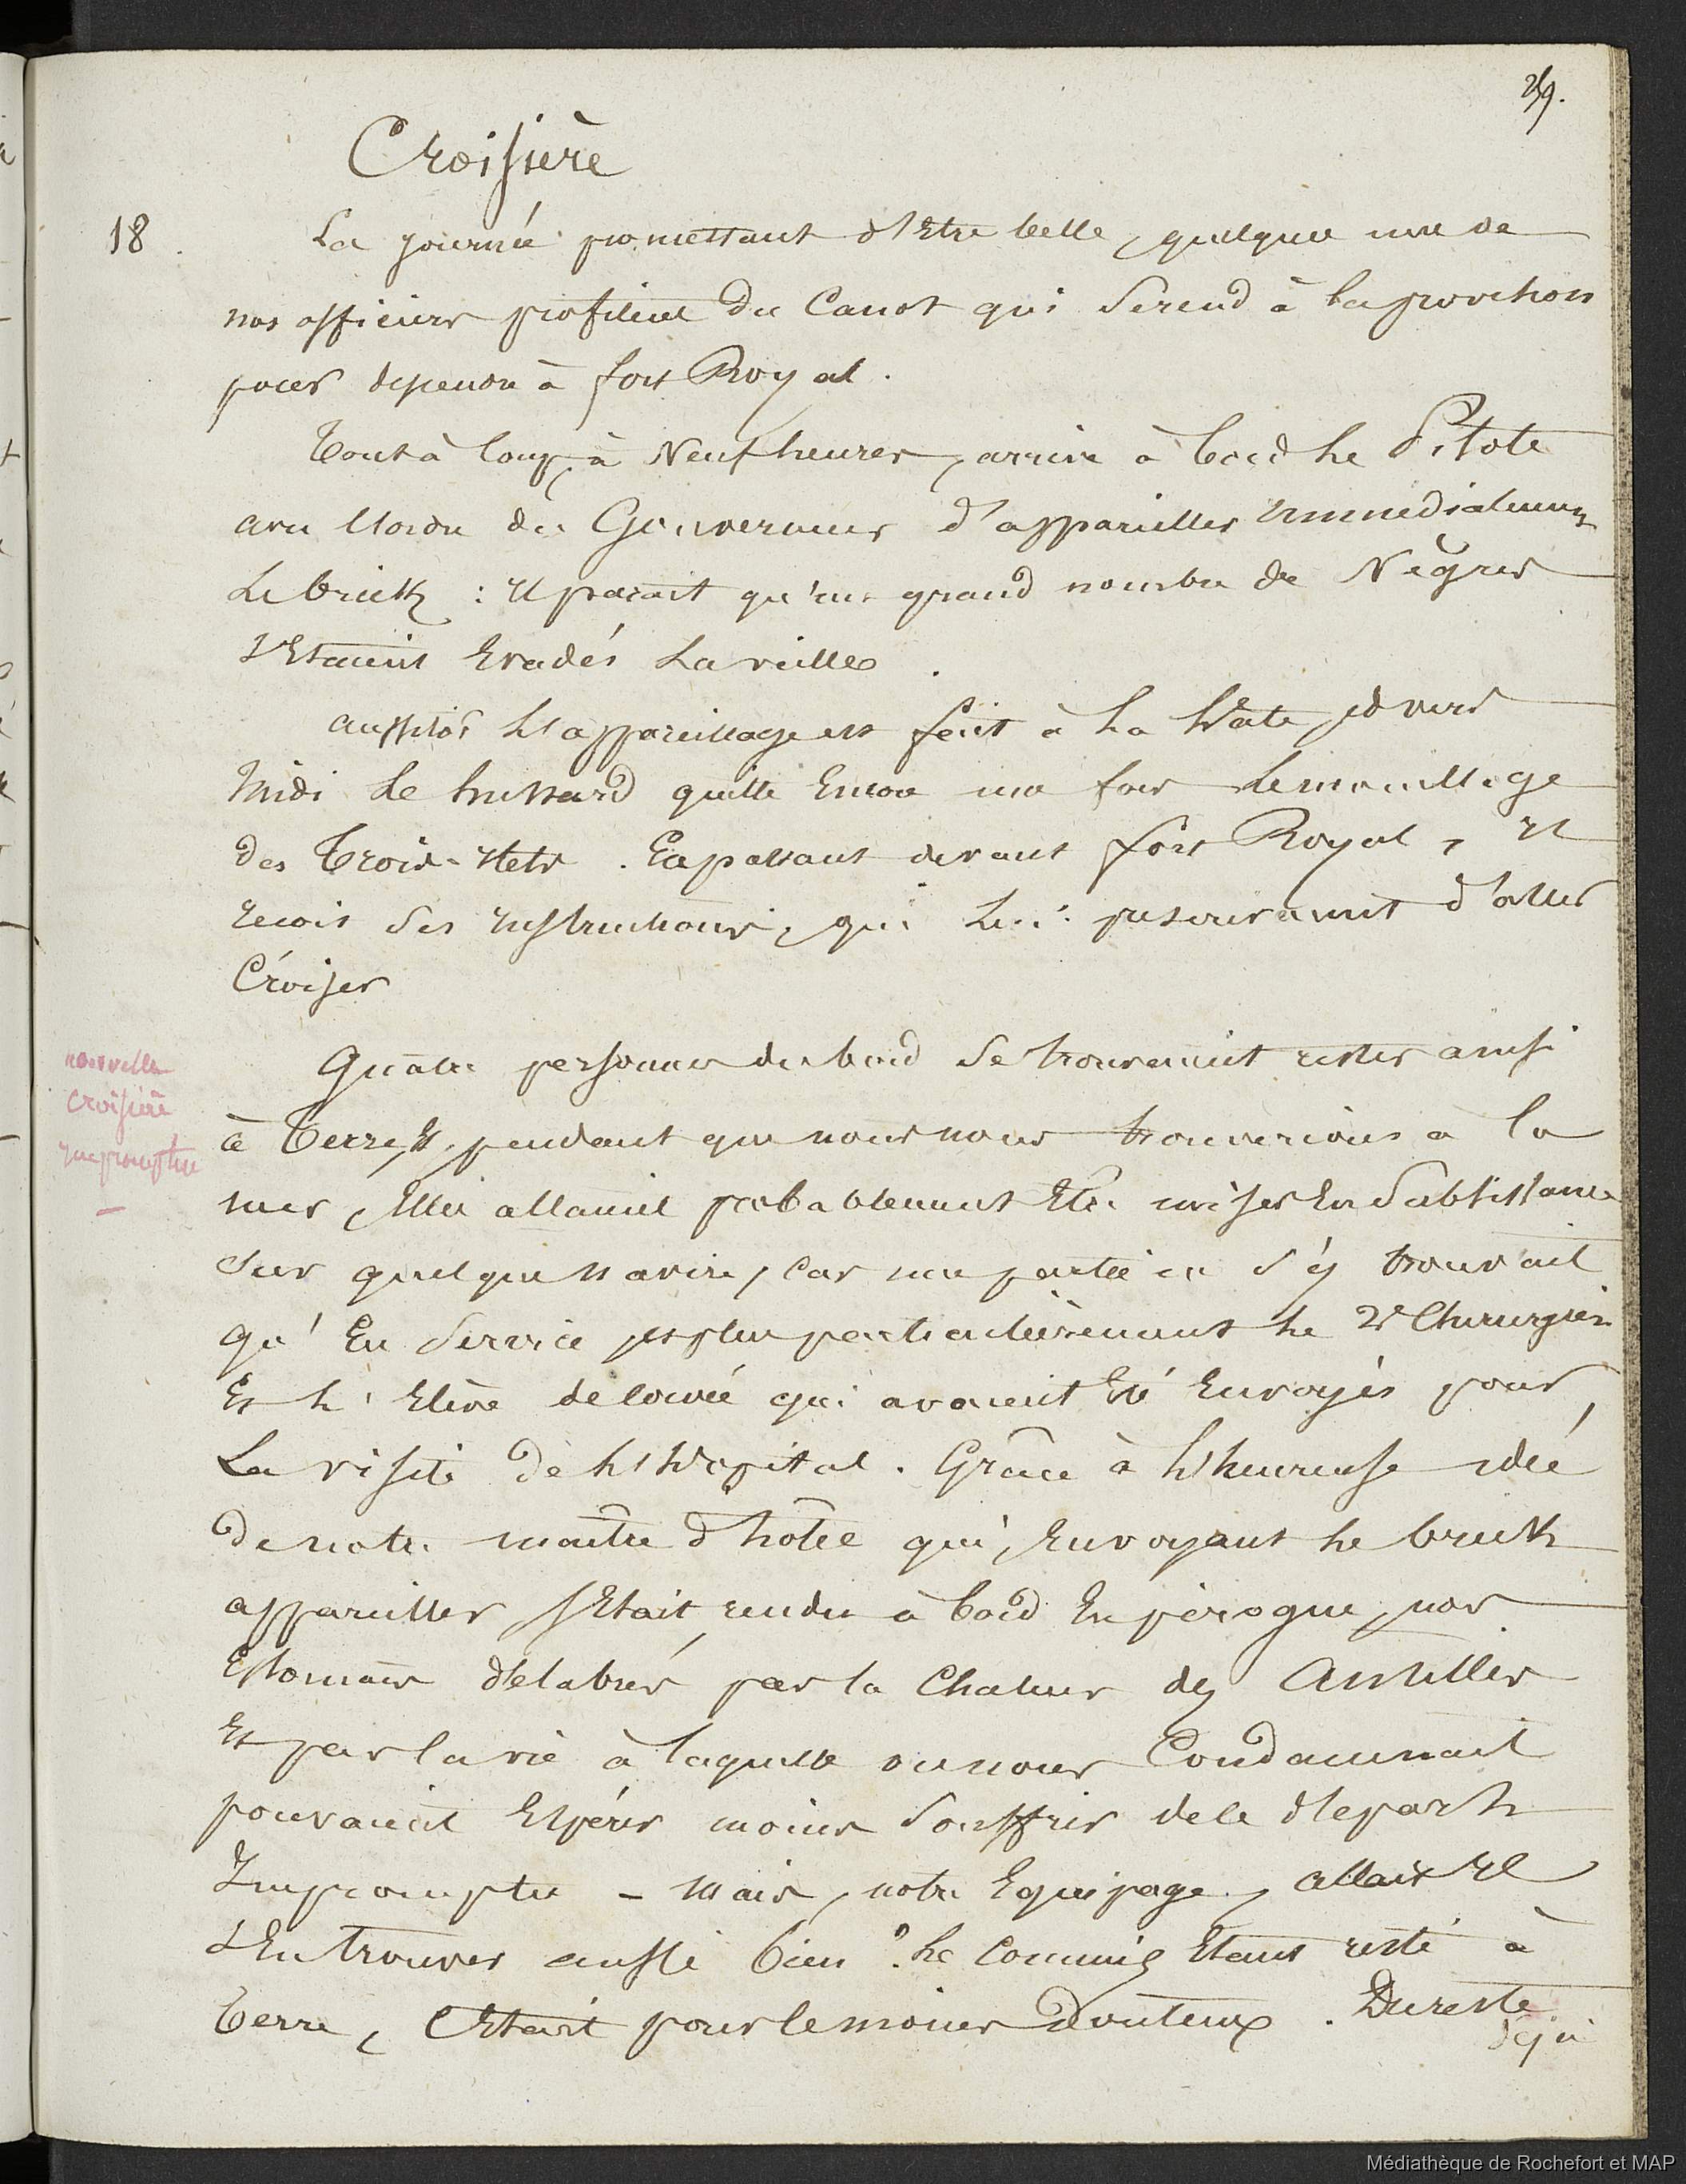 29.
Croisière
18
La journée promettant d'Etre belle, quelques uns de
nos officiers profitent du Canot qui Serend à la provision
pour descendre à fort Royal.
Tout à Coup, à Neuf heures, arrive à bord le Pilote
avec l'ordre du Gouverneur d'appareiller Immediatement
Le brick : Il parait qu'un grand nombre de Nègres
s'Etaient Evadés La veille.
Aussitôt L'appareillage est fait à La hâte, et vers
Midi Le hussard quitte Encore une fois Le mouillage
des Trois-Ilets. En passant devant fort Royal, Il
reçoit des Instructions, qui Lui prescrivaient d'aller
Croiser
nouvelle
Croisière
Impromptue
Quatre personnes du bord Se trouvaient rester ainsi
à Terre, Et, pendant que nous nous trouverions à la
mer, Elles allaient probablement Etre mises En Subsistance
Sur quelque Navire, Car une partie ne s'y trouvait
qu'En Service, et plus particulièrement le 2e Chirurgien
Et L'Elève de corvée qui avaient Eté Envoyés pour
La visite de L'hôpital. Grâce à L'heureuse idée
de notre maître d'hôtel qui, En voyant le brick
appareiller, s'Etait rendu à bord En pirogue, nos
Estomacs délabrés par la Chaleur des Antilles
Et par la vie à laquelle on nous Condamnait
pouvaient Espérer moins Souffrir de ce départ
Impromptu - Mais, notre Equipage, allait Il
s'En trouver aussi bien ? Le Commis Etant resté à
Terre, C'Etait pour le moins douteux. Dureste
déjà
Médiathèque de Rochefort et MAP